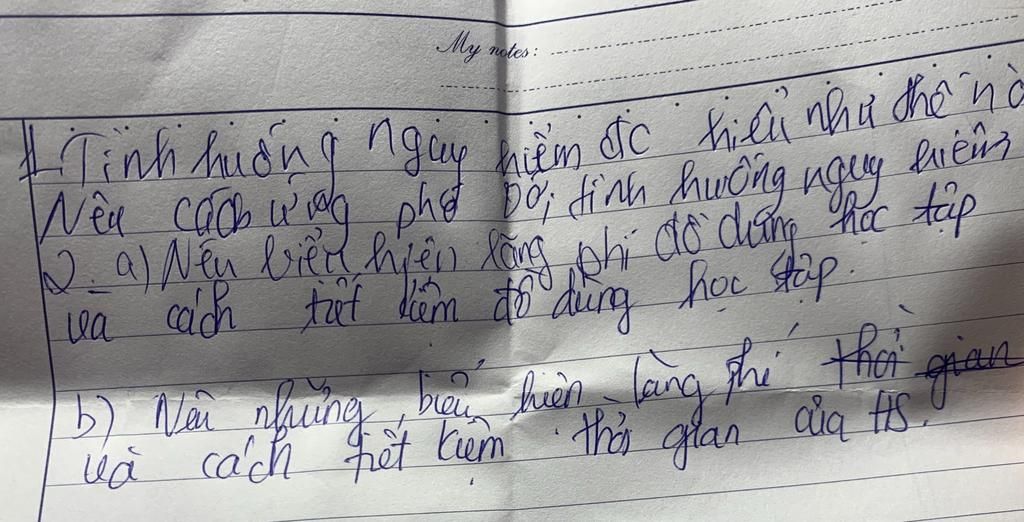 My notes:
1. Tình huống nguy hiểm đc hiểu như thế nà
Nêu cách ứng phó với tình huống nguy hiểm
2. a) Nêu biểu hiện lãng phí đồ dùng học tập
và cách tiết kiệm đồ dùng học tập.
b) Nêu những biểu hiện lãng phí thời gian
và cách tiết kiệm thời gian của HS.